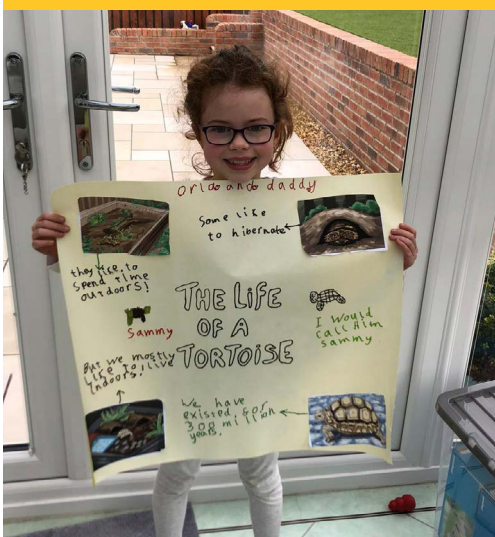 orla and daddy
Some like
to hibernate
they like to
spend time
outdoors!
THE LiFE
OF A
TORTOISE
Sammy
I would
Call Him
Sammy
But we mostly
Like To live
indoors.
We have
existed for
300 million
years.